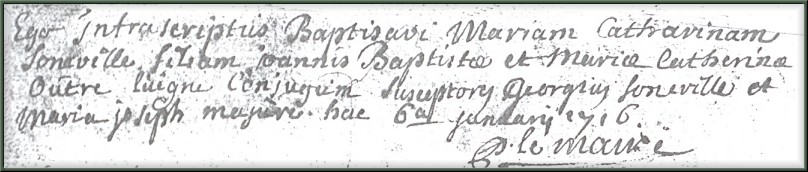 Ego Infrascriptus Baptisavi Mariam Catharinam
Soneville filiam ioannis Baptistæ et Mariæ Catherinæ
Outre luigne Conjugum susceptores Georgius Soneville et
Maria joseph masure. hac 6a januarij 1716.
P. le maire